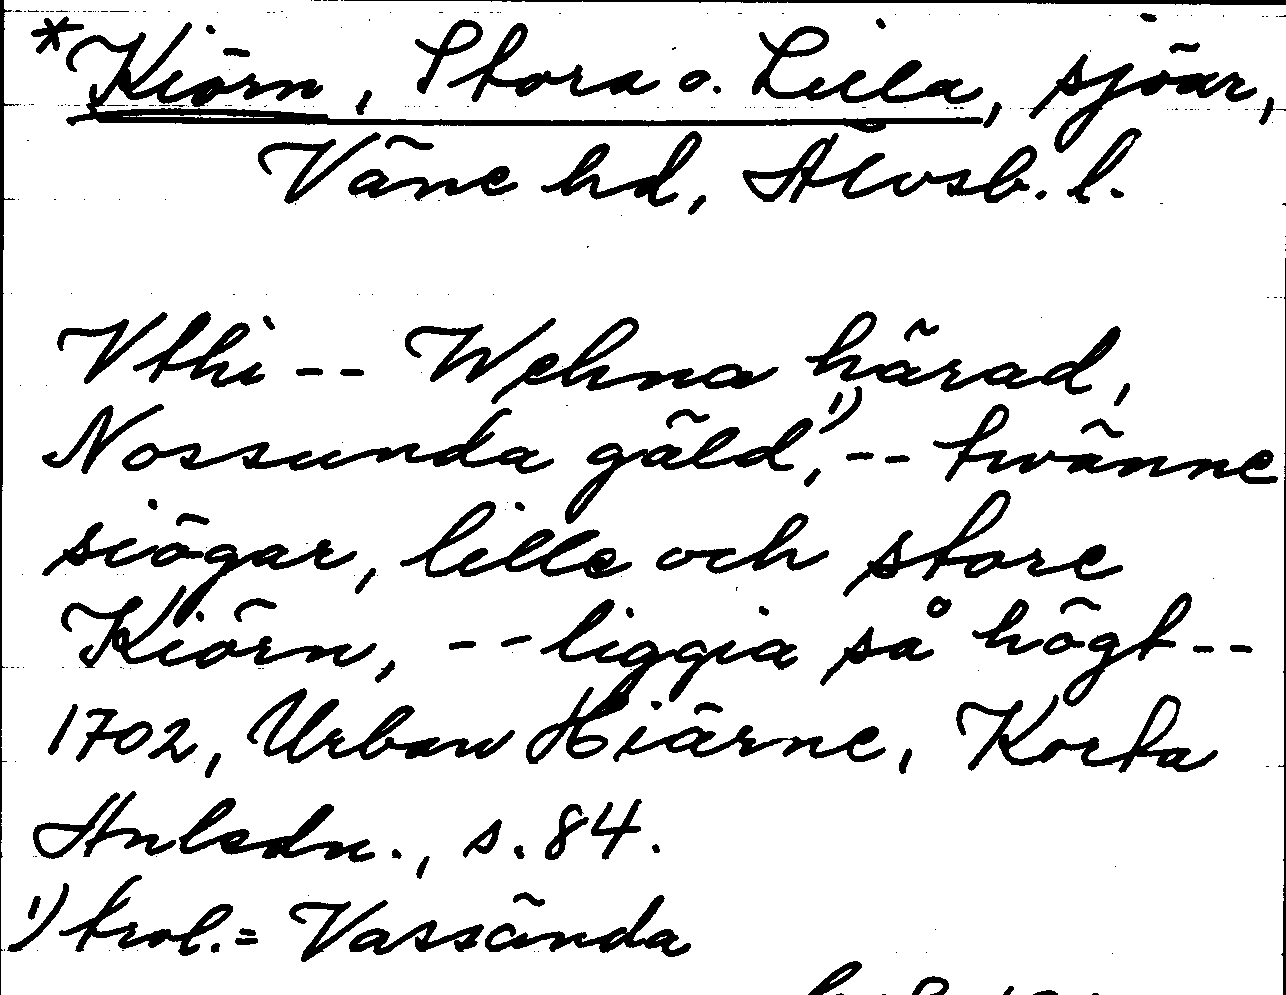 *Kiörn, Stora o. Lilla, sjöar,
Väne hd, Älvsb. l.
Vthi -- Wehna härad,
Nossunda gäld,¹⁾ -- twänne
siögar, lille och store
Kiörn, -- liggia så högt --
1702, Urban Hiärne, Korta
Anledn., s. 84.
1) trol. = Vassända